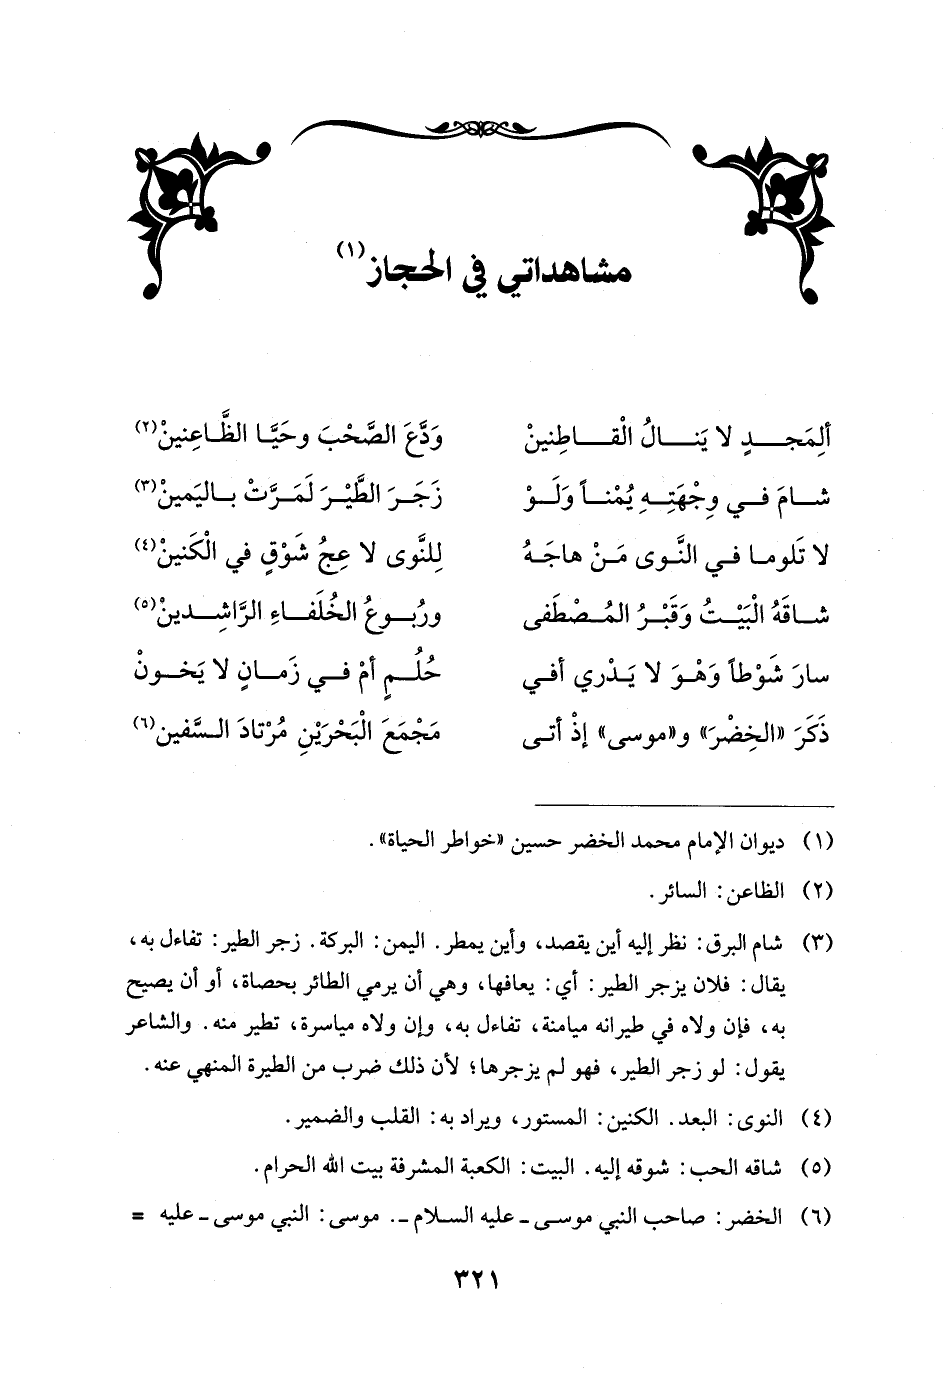 مشاهداتي في الحجاز(١)
ألِمَجدٍ لا يَنالُ الْقاطِنينْ وَدَّعَ الصَّحْبَ وحَيَّا الظَّاعِنينْ(٢)
شامَ في وِجْهَتِهِ يُمْناً وَلَوْ زَجَرَ الطَّيْرَ لَمَرَّتْ باليَمينْ(٣)
لا تَلوما في النَّوى مَنْ هاجَهُ لِلنَّوى لا عِجُ شَوْقٍ في الْكَنينْ(٤)
شاقَهُ الْبَيْتُ وَقَبْرُ المُصْطَفى ورُبوعُ الخُلَفاءِ الرَّاشِدينْ(٥)
سارَ شَوْطاً وَهْوَ لا يَدْري أفي حُلُمٍ أمْ في زَمانٍ لا يَخونْ
ذَكَرَ «الخِضْرَ» و«موسى» إذْ أتى مَجْمَعَ الْبَحْرَيْنِ مُرْتادَ السَّفين(٦)
(١) ديوان الإمام محمد الخضر حسين «خواطر الحياة».
(٢) الظاعن: السائر.
(٣) شام البرق: نظر إليه أين يقصد، وأين يمطر. اليمن: البركة. زجر الطير: تفاءل به،
يقال: فلان يزجر الطير: أي: يعافها، وهي أن يرمي الطائر بحصاة، أو أن يصيح
به، فإن ولاه في طيرانه ميامنة، تفاءل به، وإن ولاه مياسرة، تطير منه. والشاعر
يقول: لو زجر الطير، فهو لم يزجرها؛ لأن ذلك ضرب من الطيرة المنهي عنه.
(٤) النوى: البعد. الكنين: المستور، ويراد به: القلب والضمير.
(٥) شاقه الحب: شوقه إليه. البيت: الكعبة المشرفة بيت الله الحرام.
(٦) الخضر: صاحب النبي موسى ـ عليه السلام ـ. موسى: النبي موسى ـ عليه =
٣٢١